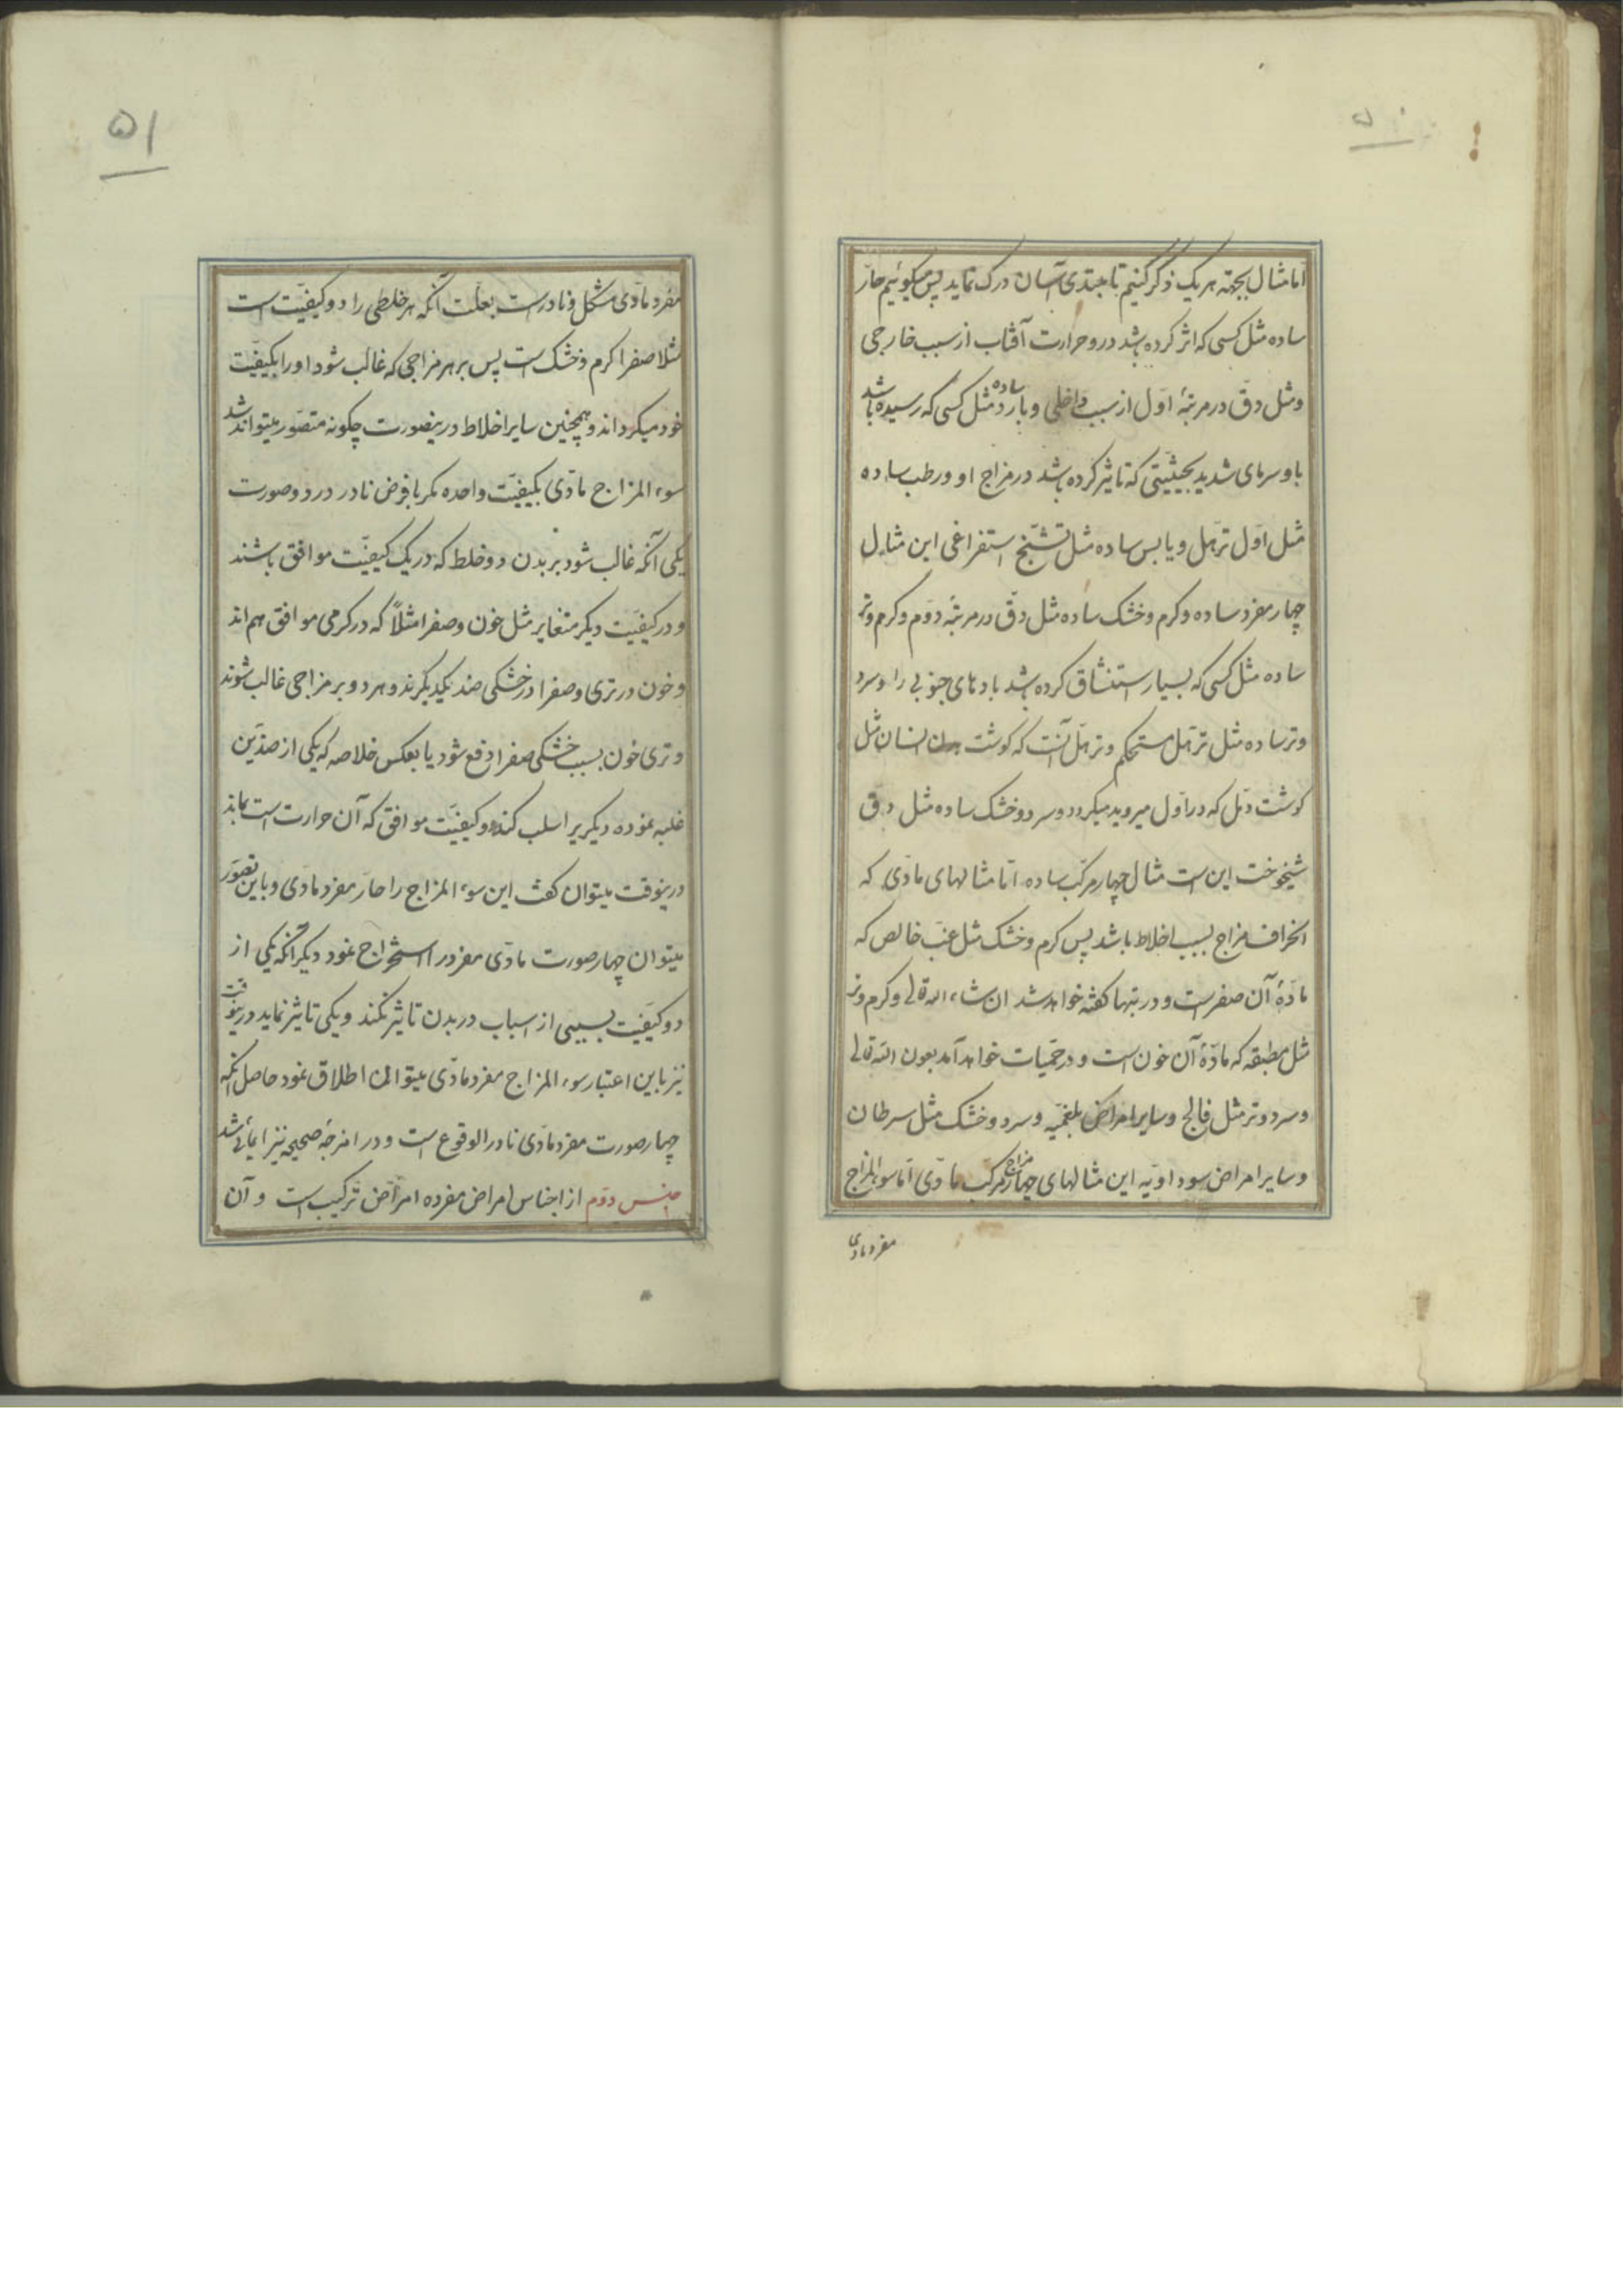 ۵۰
اما مثال بجهته هر یک ذکر کنیم تا مبتدی آسان درک نماید پس میکوئیم حارّ
ساده مثل کسی که اثر کرده باشد درو حرارت آفتاب از سبب خارجی
ومثل دقّ در مرتبهٔ اوّل از سبب داخلی و بارد ساده مثل کسی که رسیده باشد
باو سرمای شدید بحیثیّتی که تاثیر کرده باشد در مزاج او و رطب ساده
مثل اوّل ترهّل و یابس ساده مثل تشنّج استفراغی این مثال
چهار مفرد ساده و کرم و خشک ساده مثل دقّ در مرتبهٔ دوّم و کرم و تر
ساده مثل کسی که بسیار استنشاق کرده باشد بادهای جنوبی را و سرد
و تر ساده مثل ترهّل مستحکم و ترهّل آنست که کوشت بدن انسان مثل
کوشت دمل که در اوّل میروید میکردد و سرد و خشک ساده مثل دقّ
شیخوخت این است مثال چهار مرکّب ساده امّا مثالهای مادّی که
انحراف مزاج بسبب اخلاط باشد پس کرم و خشک مثل غبّ خالص که
مادّهٔ آن صفراست و در تبها کفته خواهد شد ان شاء الله تعالی و کرم و تر
مثل مطبقه که مادّهٔ آن خون است و در حمّیات خواهد آمد بعون الله تعالی
و سرد و تر مثل فالج و سایر امراض بلغمیّه و سرد و خشک مثل سرطان
و سایر امراض سوداویّه این مثالهای چهار مزاج مرکّب مادّی امّا سوء المزاج
مفرد مادی
۵۱
مفرد مادّی مشکل و نادرست بعلّت آنکه هر خلطی را دو کیفیّت است
مثلا صفرا کرم و خشک است پس بر هر مزاجی که غالب شود او را بکیفیّت
خود میکرداند و همچنین سایر اخلاط درینصورت چکونه متصوّر میتواند شد
سوء المزاج مادّی بکیفیّت واحده مکر بافرض نادر در دو صورت
یکی آنکه غالب شود بر بدن دو خلط که در یک کیفیّت موافق باشند
و در کیفیّت دیکر متغایر مثل خون و صفرا مثلاً که در کرمی موافق هم اند
و خون در تری و صفرا در خشکی ضد یکدیکرند و هر دو بر مزاجی غالب شوند
و تری خون بسبب خشکی صفرا دفع شود یا بعکس خلاصه که یکی از ضدّین
غلبه نموده دیکریرا سلب کند و کیفیّت موافق که آن حرارت است بماند
درینوقت میتوان کفت این سوء المزاج را حارّ مفرد مادّی و باین تصوّر
میتوان چهار صورت مادّی مفرد را استخراج نمود دیکر آنکه یکی از
دو کیفیّت بسببی از اسباب در بدن تاثیر نکند و یکی تاثیر نماید درینوقت
نیز باین اعتبار سوء المزاج مفرد مادّی میتوان اطلاق نمود حاصل آنکه
چهار صورت مفرد مادّی نادر الوقوع است و در امزجهٔ صحیحه نیز ایمائی شد
جنس دوّم از اجناس امراض مفرده امراض ترکیب است و آن